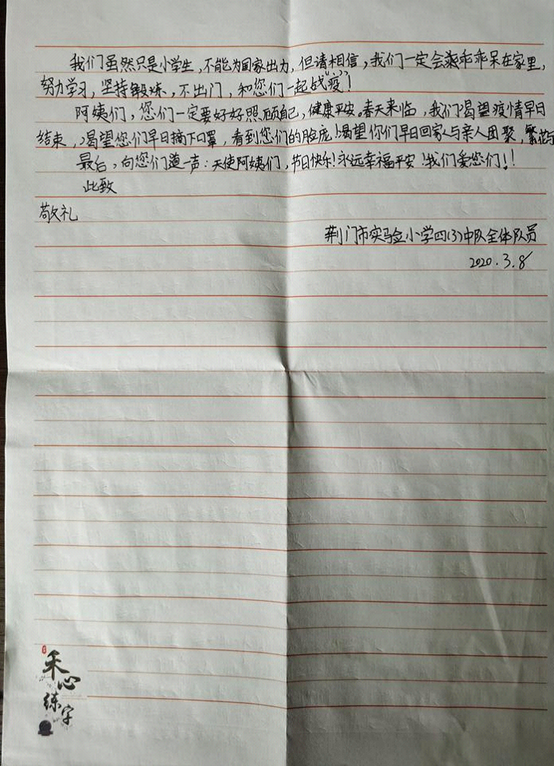 我们虽然只是小学生，不能为国家出力，但请相信，我们一定会乖乖呆在家里，
努力学习，坚持锻炼，不出门，和您们一起战"疫"！
阿姨们，您们一定要好好照顾自己，健康平安。春天来临，我们渴望疫情早日
结束，渴望您们早日摘下口罩，看到您们的脸庞！渴望你们早日回家与亲人团聚，
最后，向您们道一声：天使阿姨们，节日快乐！永远幸福平安！我们爱您们！！
此致
敬礼
荆门市实验小学四(3)中队全体队员
2020.3.8
禾心
练字